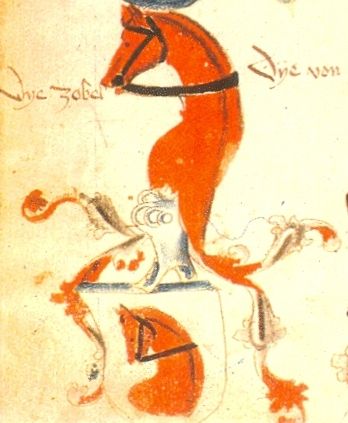 Dye zobel
Dye von